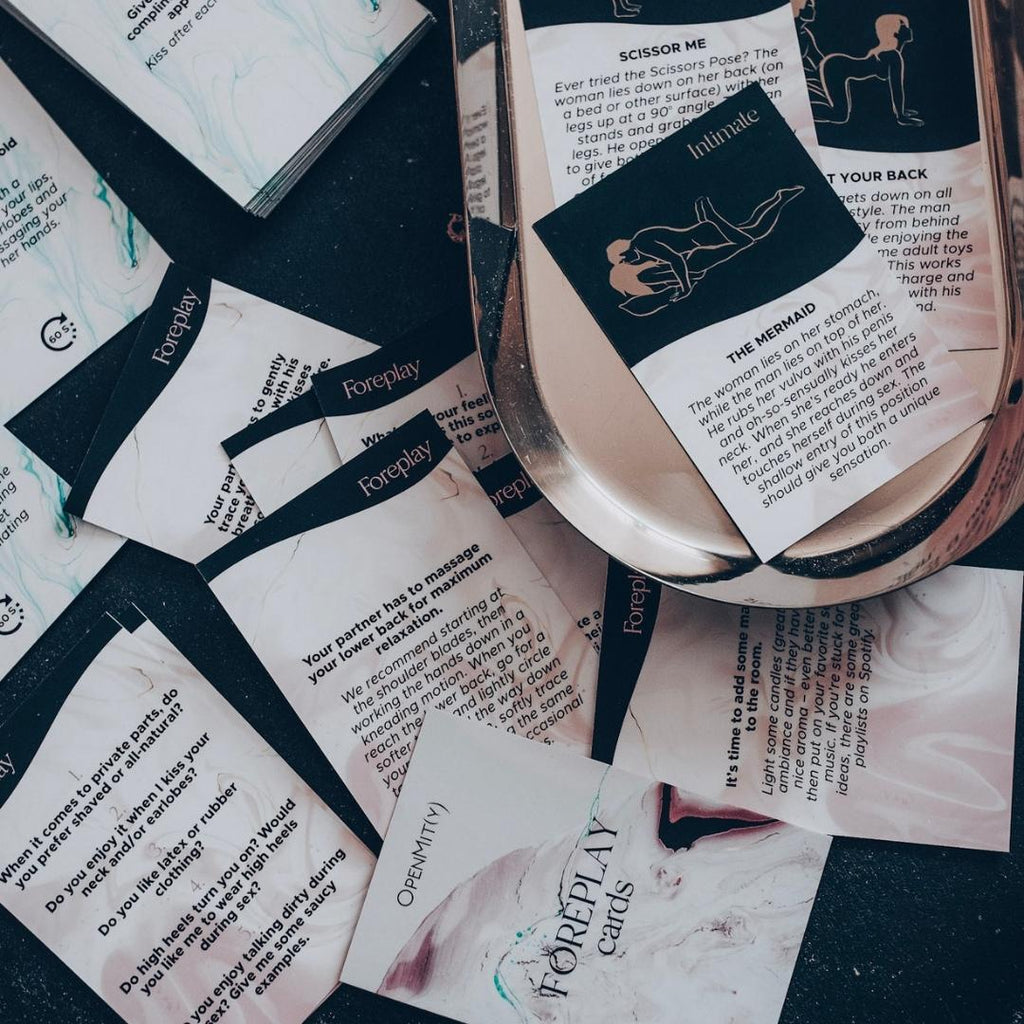 Give
complim
app
Kiss after each
old
your lips,
earlobes and
massaging your
her hands.
60 S.
60 S.
SCISSOR ME
Ever tried the Scissors Pose? The
woman lies down on her back (on
a bed or other surface) with her
legs up at a 90° angle.
stands and grabs
legs. He open
to give bo
of
T YOUR BACK
gets down on all
style. The man
from behind
enjoying the
me adult toys
This works
charge and
with his
Intimate
THE MERMAID
The woman lies on her stomach,
while the man lies on top of her.
He rubs her vulva with his penis
and oh-so-sensually kisses her
neck. When she's ready he enters
her, and she reaches down and
touches herself during sex. The
shallow entry of this position
should give you both a unique
sensation.
Foreplay
to gently
with his
kisses
Your par
trace
breat
Foreplay
1.
your feel
this so
to exp
2.
Foreplay
Your partner has to massage
your lower back for maximum
relaxation.
We recommend starting at
the shoulder blades, then
working the hands down in a
kneading motion. When you
reach the lower back, go for a
softer
and lightly circle
the way down
softly trace
the same
Forepl
It's time to add some ma
to the room.
Light some candles (grea
ambiance and if they hav
nice aroma – even better
then put on your favorite s
music. If you're stuck for
ideas, there are some grea
playlists on Spotify.
1.
When it comes to private parts, do
you prefer shaved or all-natural?
2.
Do you enjoy it when I kiss your
neck and/or earlobes?
3.
Do you like latex or rubber
clothing?
4.
Do high heels turn you on? Would
you like me to wear high heels
during sex?
you enjoy talking dirty during
sex? Give me some saucy
examples.
OPENMIT(Y)
FOREPLAY
cards